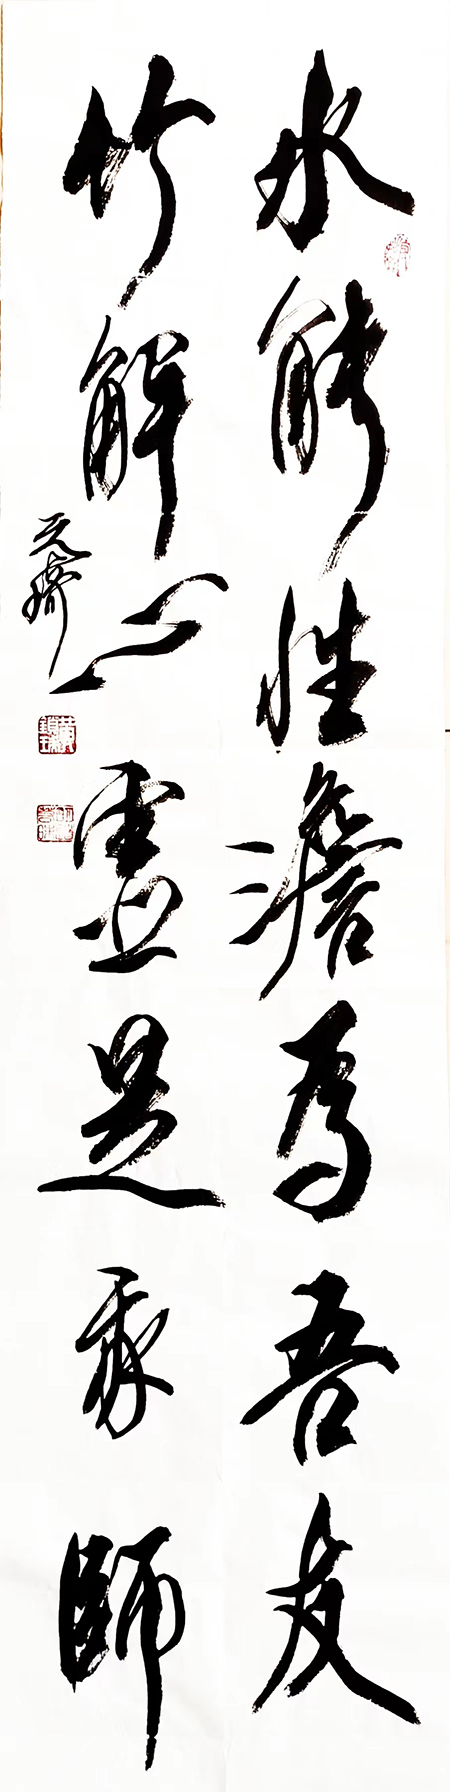 水能性澹為吾友
竹解心靈是我師
元齋